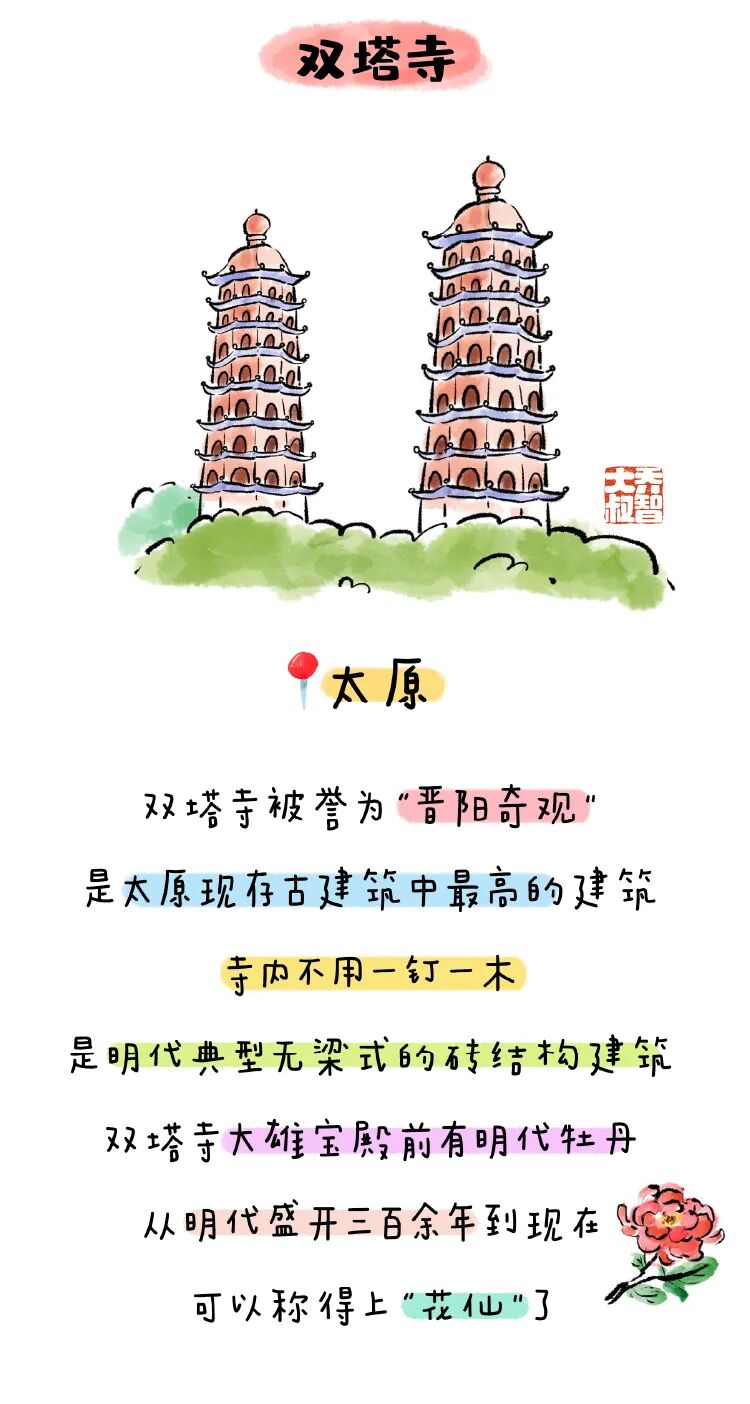 双塔寺
乔智大叔
太原
双塔寺被誉为"晋阳奇观"
是太原现存古建筑中最高的建筑
寺内不用一钉一木
是明代典型无梁式的砖结构建筑
双塔寺大雄宝殿前有明代牡丹
从明代盛开三百余年到现在
可以称得上"花仙"了